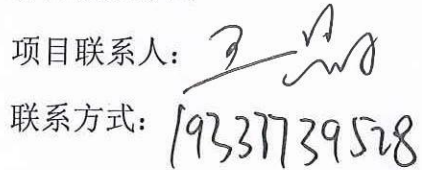 项目联系人：王
联系方式：19337739528